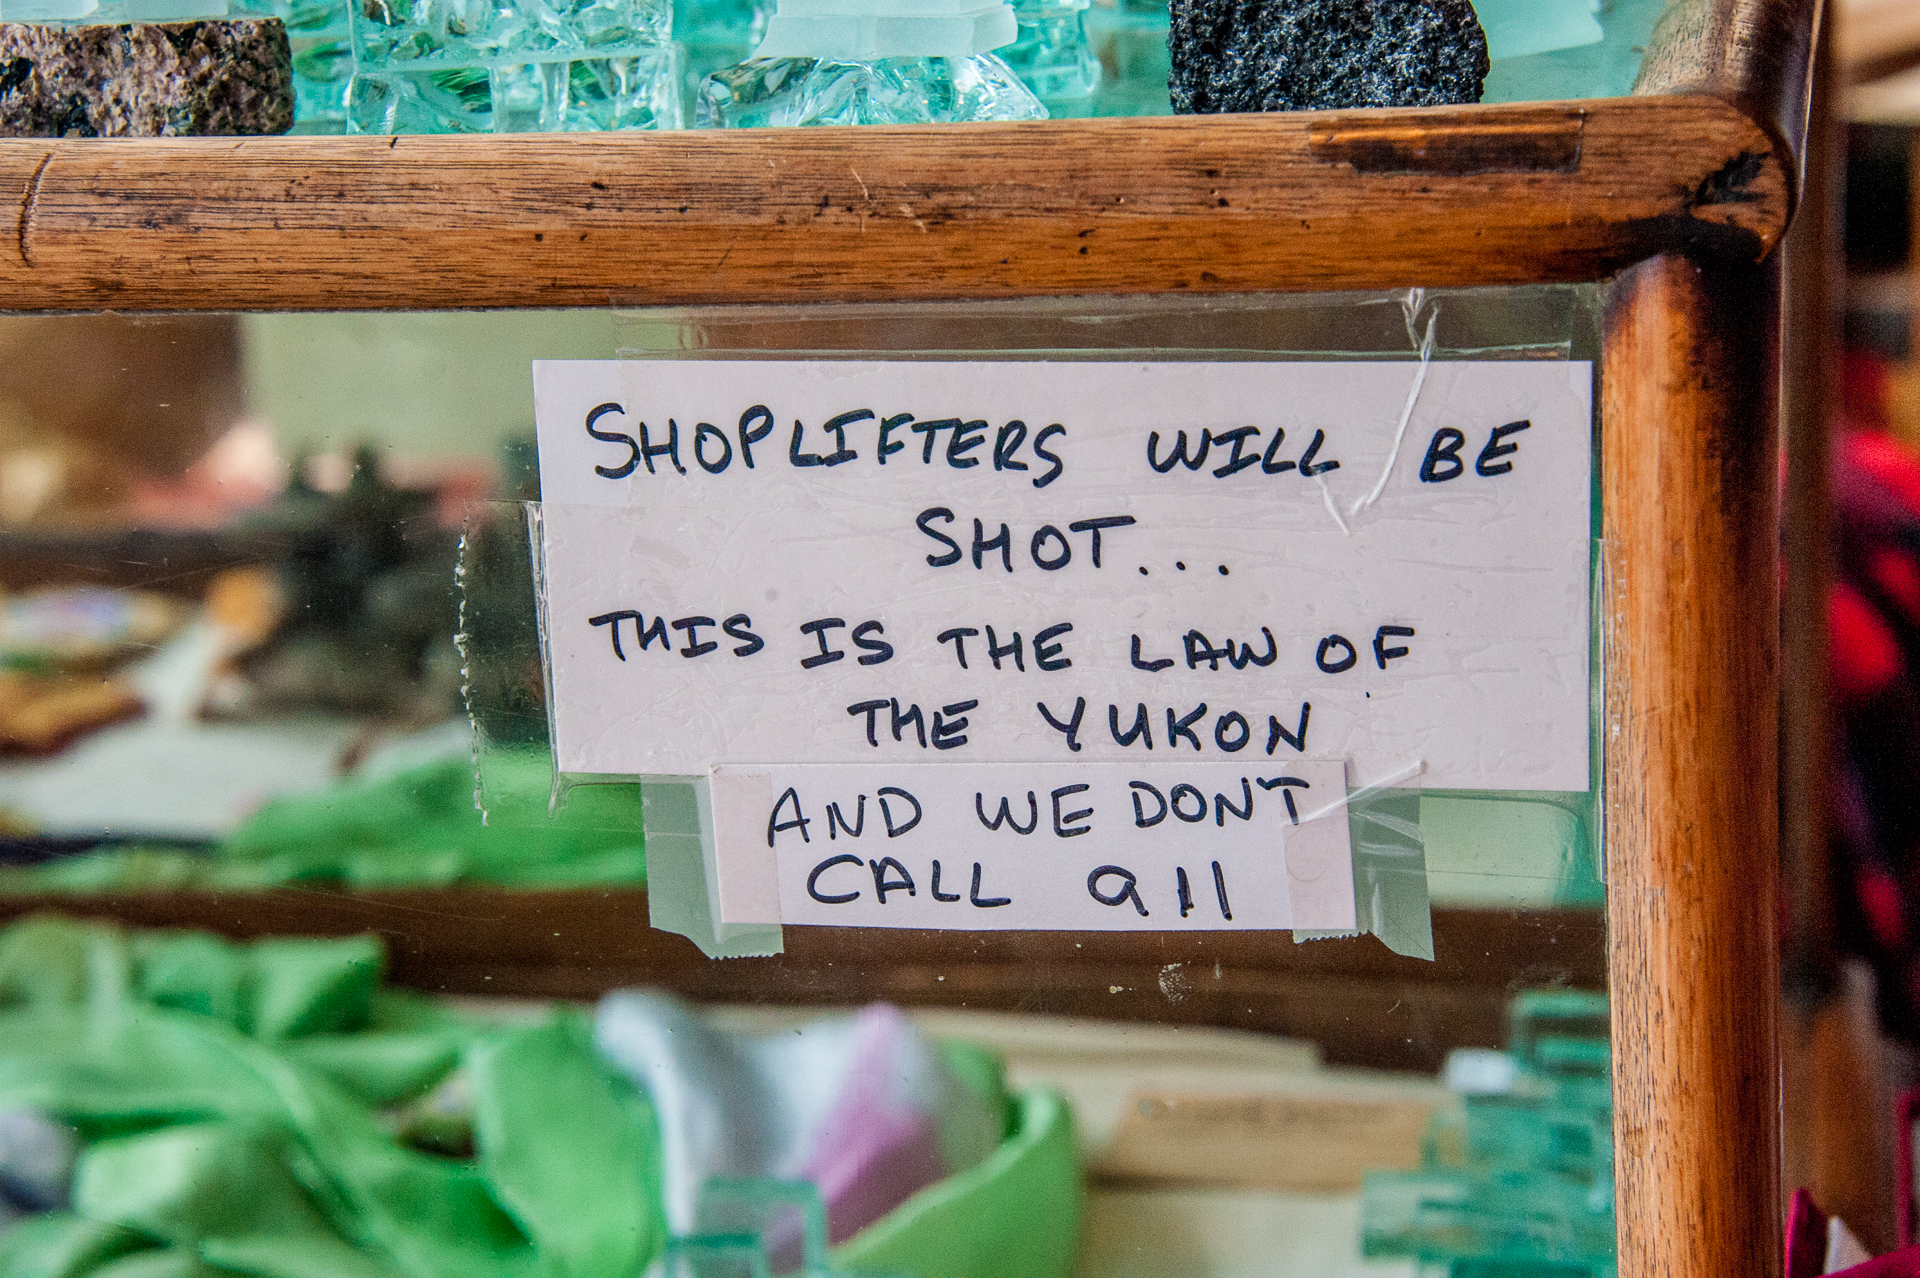 SHOPLIFTERS WILL BE
SHOT...
THIS IS THE LAW OF
THE YUKON
AND WE DON'T
CALL 911